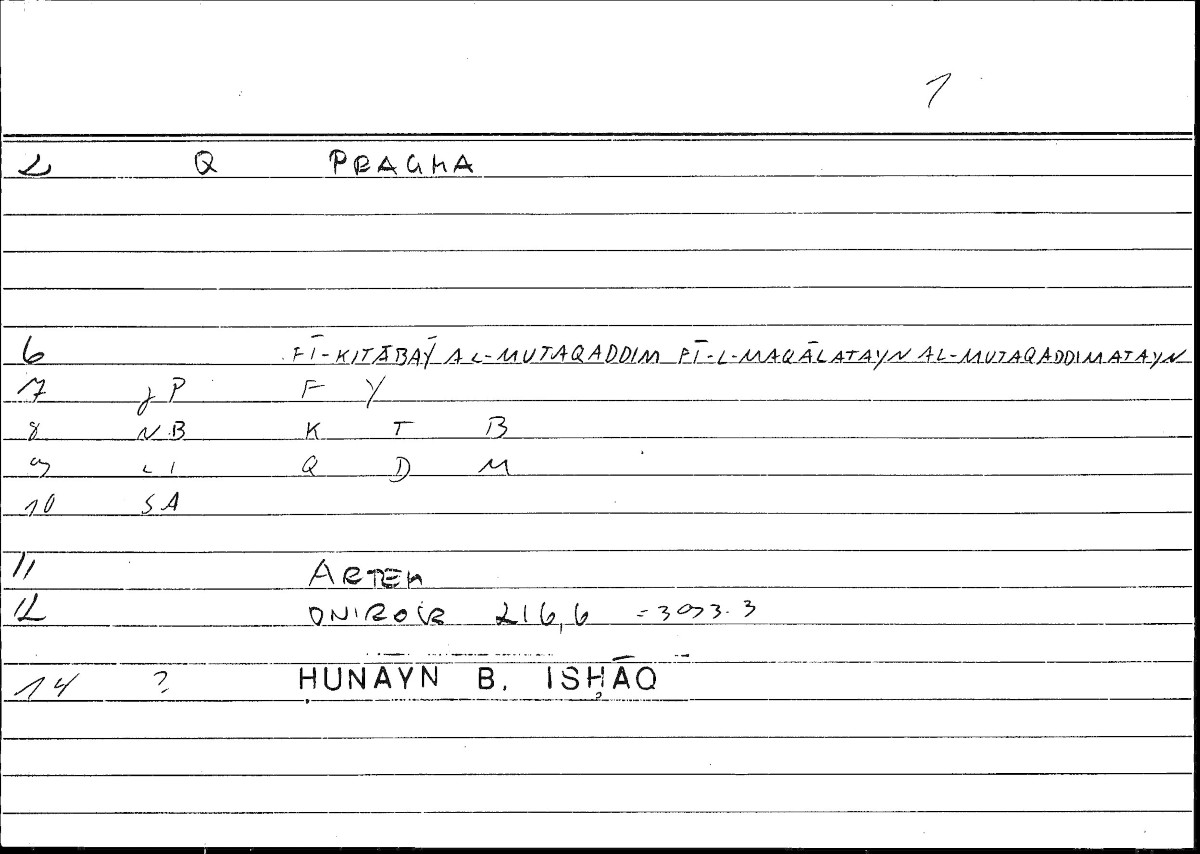 1
2 Q PRAGMA
6 FĪ-KITĀBAY AL-MUTAQADDIM FĪ-L-MAQĀLATAYN AL-MUTAQADDIMATAYN
7 P F Y
8 NB K T B
9 LI Q D M
10 SA
11 ARTEM
12 ONIROCR 216,6 =393.3
14 ? ḤUNAYN B. ISḤĀQ